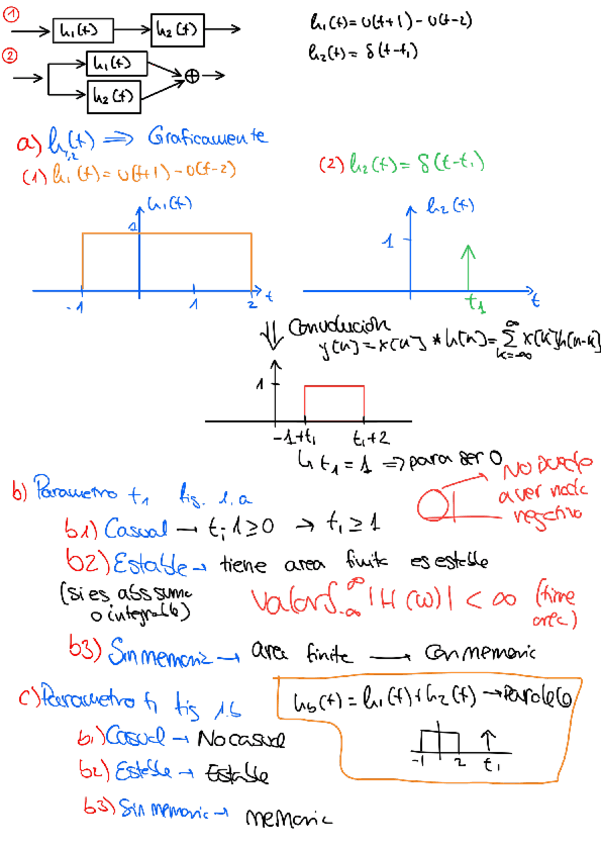 ① h₁(t) h₂(t)
h₁(t) = u(t+1) - u(t-2)
h₂(t) = δ(t-t₁)
② h₁(t) ⊕
h₂(t)
a) h₁,₂(t) ⇒ Graficamente
(1) h₁(t) = u(t+1) - u(t-2)
(2) h₂(t) = δ(t-t₁)
h₁(t)
1
-1 1 2 t
h₂(t)
1
t₁ t
⇓ Convolucion
y[n] = x[n] * h[n] = ∑ₖ₌₋∞^∞ x[k]h[n-k]
1
-1+t₁ t₁+2
↳ t₁ = 1 ⇒ para ser 0
No puede
aver nada
negativo
b) Parametro t₁ fig. 1.a
b1) Casual → t₁-1≥0 → t₁≥1
b2) Estable → tiene area finita es estable
(si es abs suma
o integrable)
Valor ∫₋∞^∞ |H(ω)| < ∞ (time
area)
b3) Sin memoria → area finite → Con memoria
c) Parametro t₁ fig 1.b
b1) Casual → No casual
b2) Estable → Estable
b3) Sin memoria → memoria
h₆(t) = h₁(t) + h₂(t) → Paralelo
-1 2 t₁